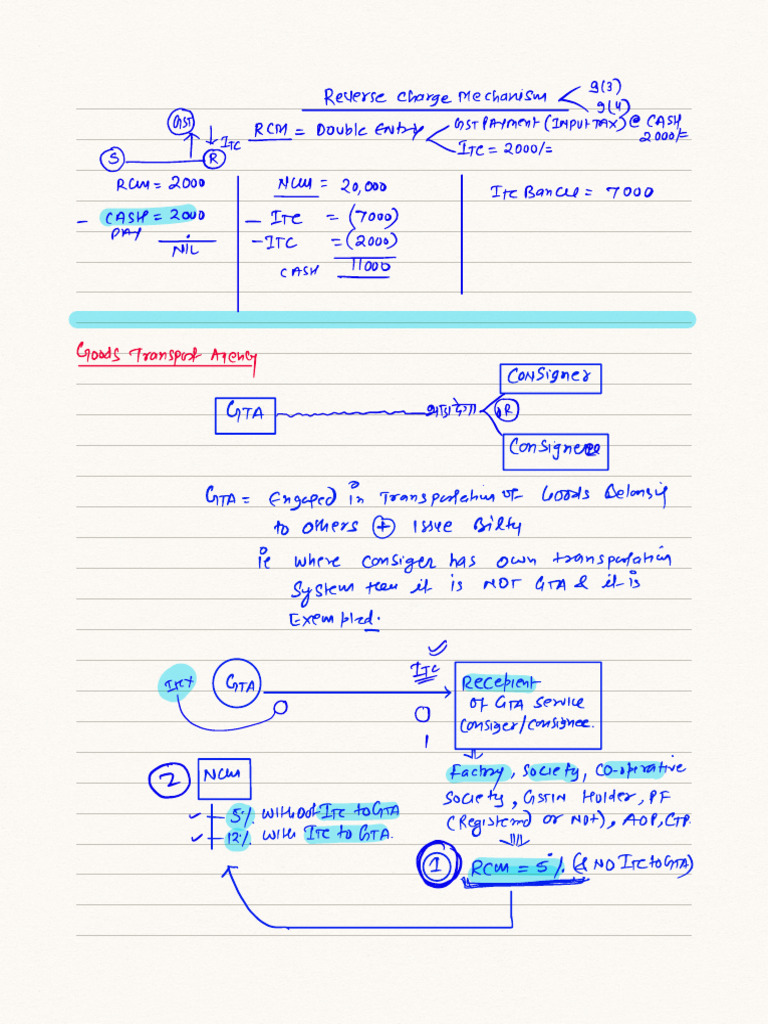 Reverse Charge Mechanism
9(3)
9(4)
GST
ITC
S
R
RCM = Double Entry
GST PAYMENT (INPUT TAX) @ CASH
2000/=
ITC = 2000/=
RCM = 2000
- CASH = 2000
PAY
NIL
NCM = 20,000
- ITC = (7000)
- ITC = (2000)
CASH 11000
ITC Bances = 7000
Goods Transport Agency
GTA
भाड़ा देगा
R
Consigner
Consignee
GTA = Engaged in Transportation of Goods Belonsig
to others + issue Bilty
ie where consiger has own transportation
System then it is NOT GTA & it is
Exempted.
ITC x
GTA
ITC
Recepient
of GTA service
Consiger/consignee.
2
NCM
5% without ITC to GTA
12% with ITC to GTA.
Factory, society, co-operative
society, GSTIN Holder, PF
(Registered or not), AOP, CTP.
1
RCM = 5% (& NO ITC to GTA)